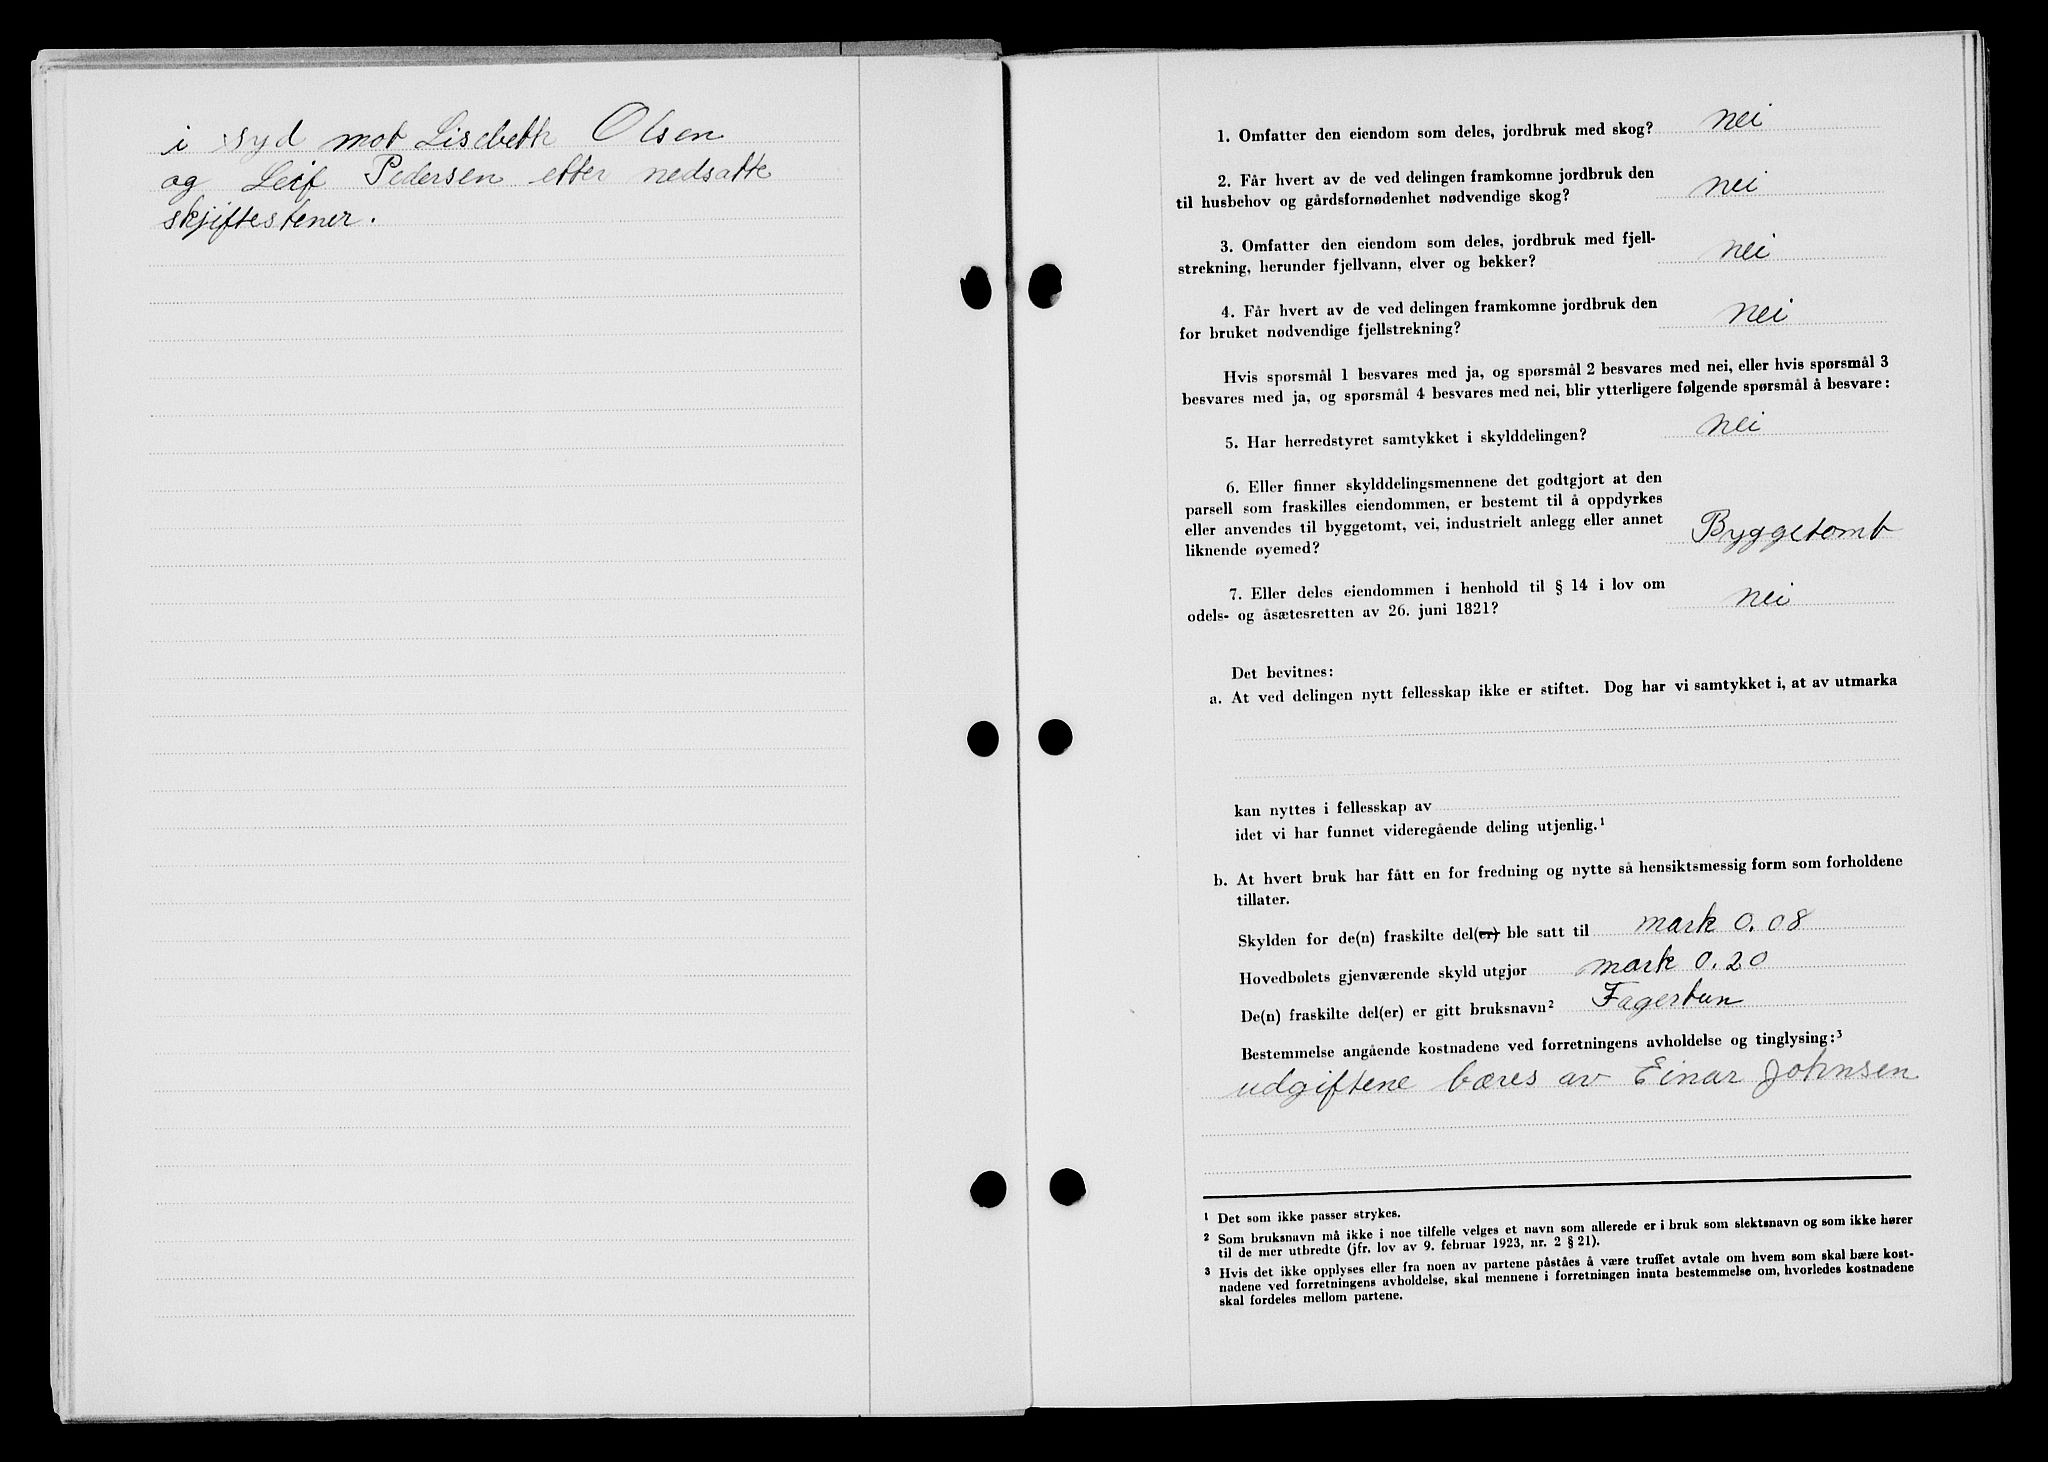 i syd mot Lisebeth Olsen
og Leif Pedersen etter nedsatte
skjiftestener.
1. Omfatter den eiendom som deles, jordbruk med skog? nei
2. Får hvert av de ved delingen framkomne jordbruk den
til husbehov og gårdsfornødenhet nødvendige skog? nei
3. Omfatter den eiendom som deles, jordbruk med fjell-
strekning, herunder fjellvann, elver og bekker? nei
4. Får hvert av de ved delingen framkomne jordbruk den
for bruket nødvendige fjellstrekning? nei
Hvis spørsmål 1 besvares med ja, og spørsmål 2 besvares med nei, eller hvis spørsmål 3
besvares med ja, og spørsmål 4 besvares med nei, blir ytterligere følgende spørsmål å besvare:
5. Har herredstyret samtykket i skylddelingen? nei
6. Eller finner skylddelingsmennene det godtgjort at den
parsell som fraskilles eiendommen, er bestemt til å oppdyrkes
eller anvendes til byggetomt, vei, industrielt anlegg eller annet
liknende øyemed? Byggetomt
7. Eller deles eiendommen i henhold til § 14 i lov om
odels- og åsætesretten av 26. juni 1821? nei
Det bevitnes:
a. At ved delingen nytt fellesskap ikke er stiftet. Dog har vi samtykket i, at av utmarka
kan nyttes i fellesskap av
idet vi har funnet videregående deling utjenlig.¹
b. At hvert bruk har fått en for fredning og nytte så hensiktsmessig form som forholdene
tillater.
Skylden for de(n) fraskilte del(er) ble satt til mark 0.08
Hovedbølets gjenværende skyld utgjør mark 0.20
De(n) fraskilte del(er) er gitt bruksnavn² Fagertun
Bestemmelse angående kostnadene ved forretningens avholdelse og tinglysing:³
udgiftene bæres av Einar Johnsen
¹ Det som ikke passer strykes.
² Som bruksnavn må ikke i noe tilfelle velges et navn som allerede er i bruk som slektsnavn og som ikke hører
til de mer utbredte (jfr. lov av 9. februar 1923, nr. 2 § 21).
³ Hvis det ikke opplyses eller fra noen av partene påståes å være truffet avtale om hvem som skal bære kost-
nadene ved forretningens avholdelse, skal mennene i forretningen innta bestemmelse om, hvorledes kostnadene
skal fordeles mellom partene.